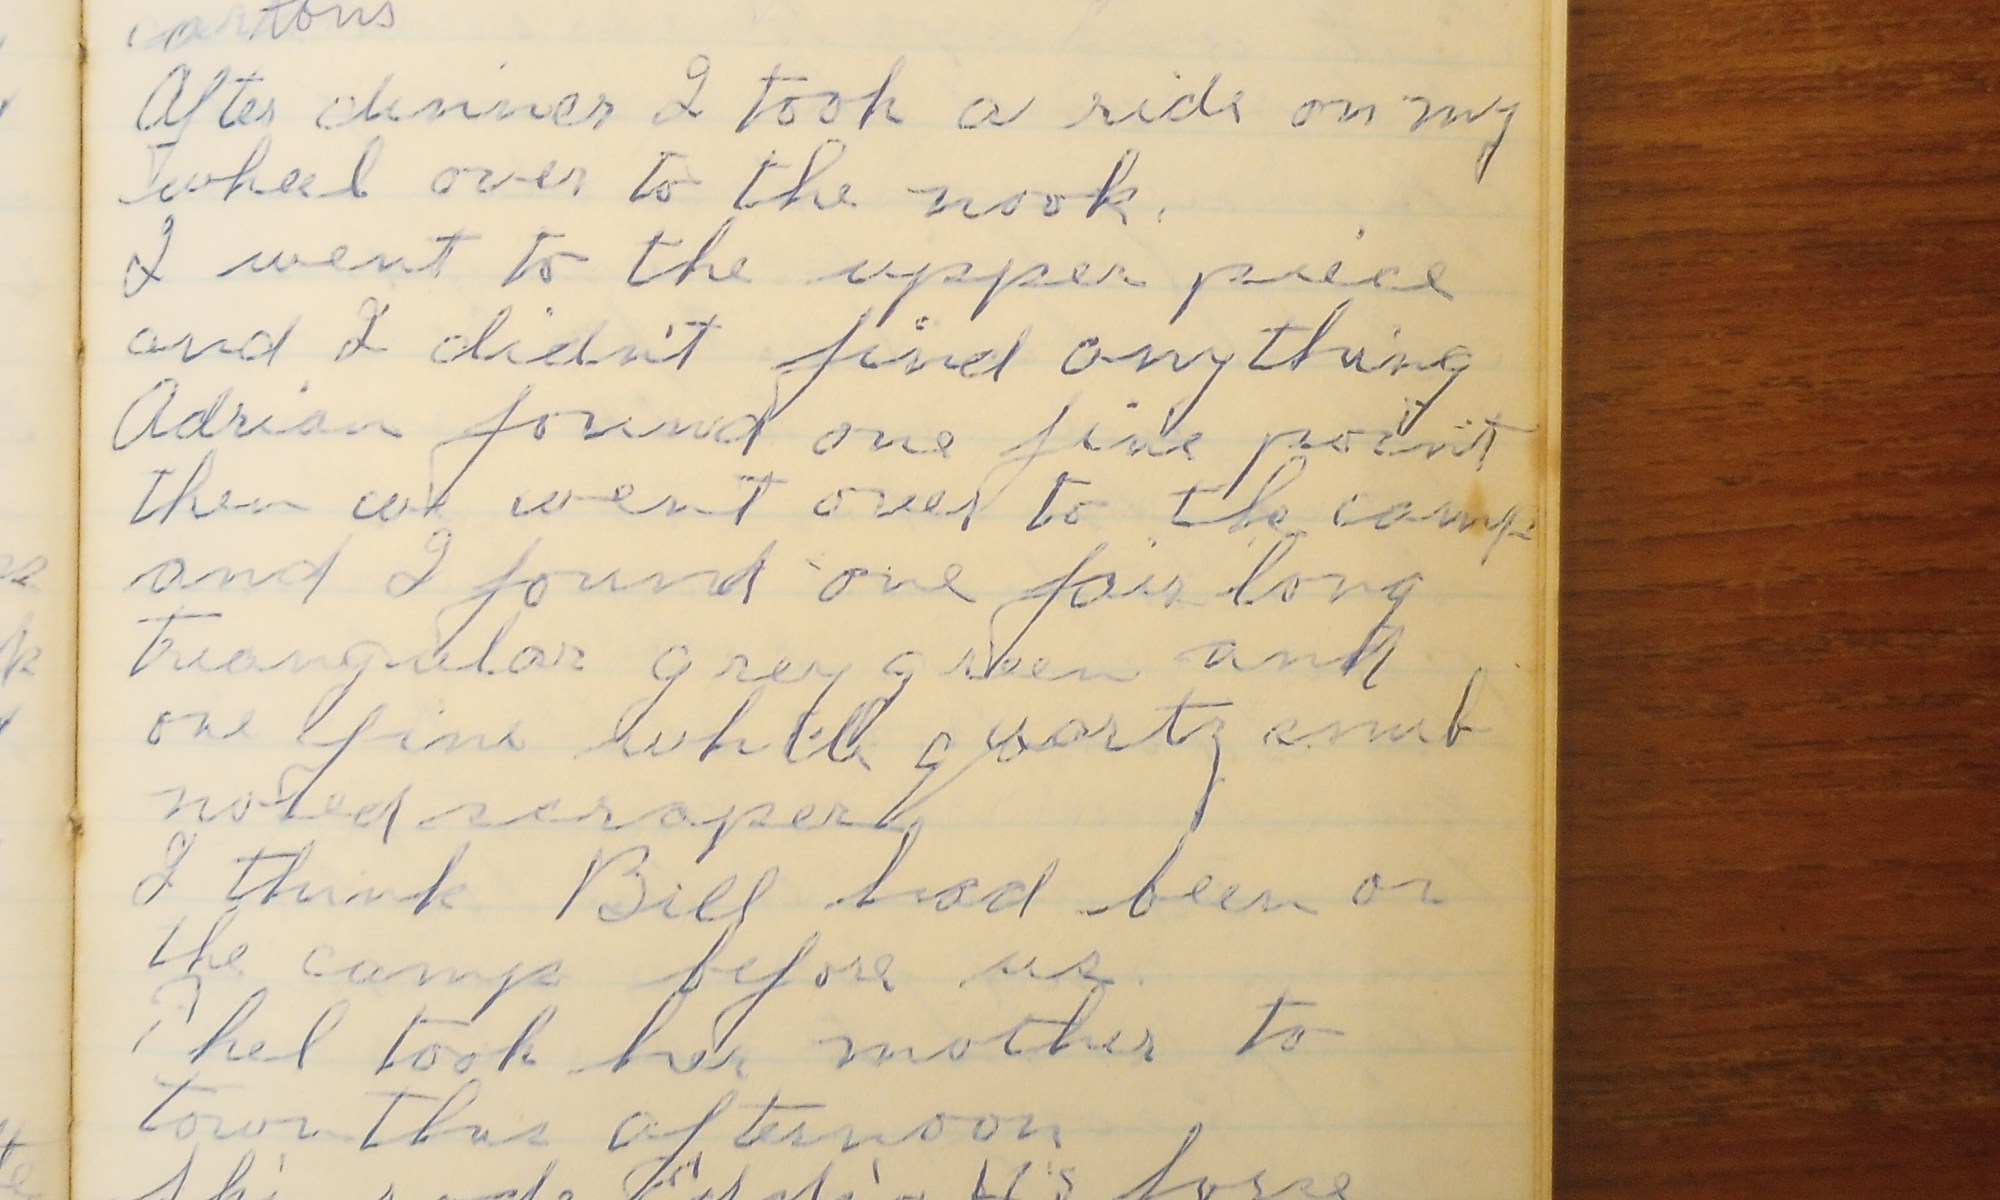 cartons
After dinner I took a ride on my
wheel over to the nook.
I went to the upper peice
and I didn't find anything
Adrian found one fine point
then we went over to the camp
and I found one fair long
triangular grey green and
one fine white quartz snub
nosed scraper
I think Bill had been on
the camp before us.
Phel took her mother to
town this afternoon
she rode H's horse